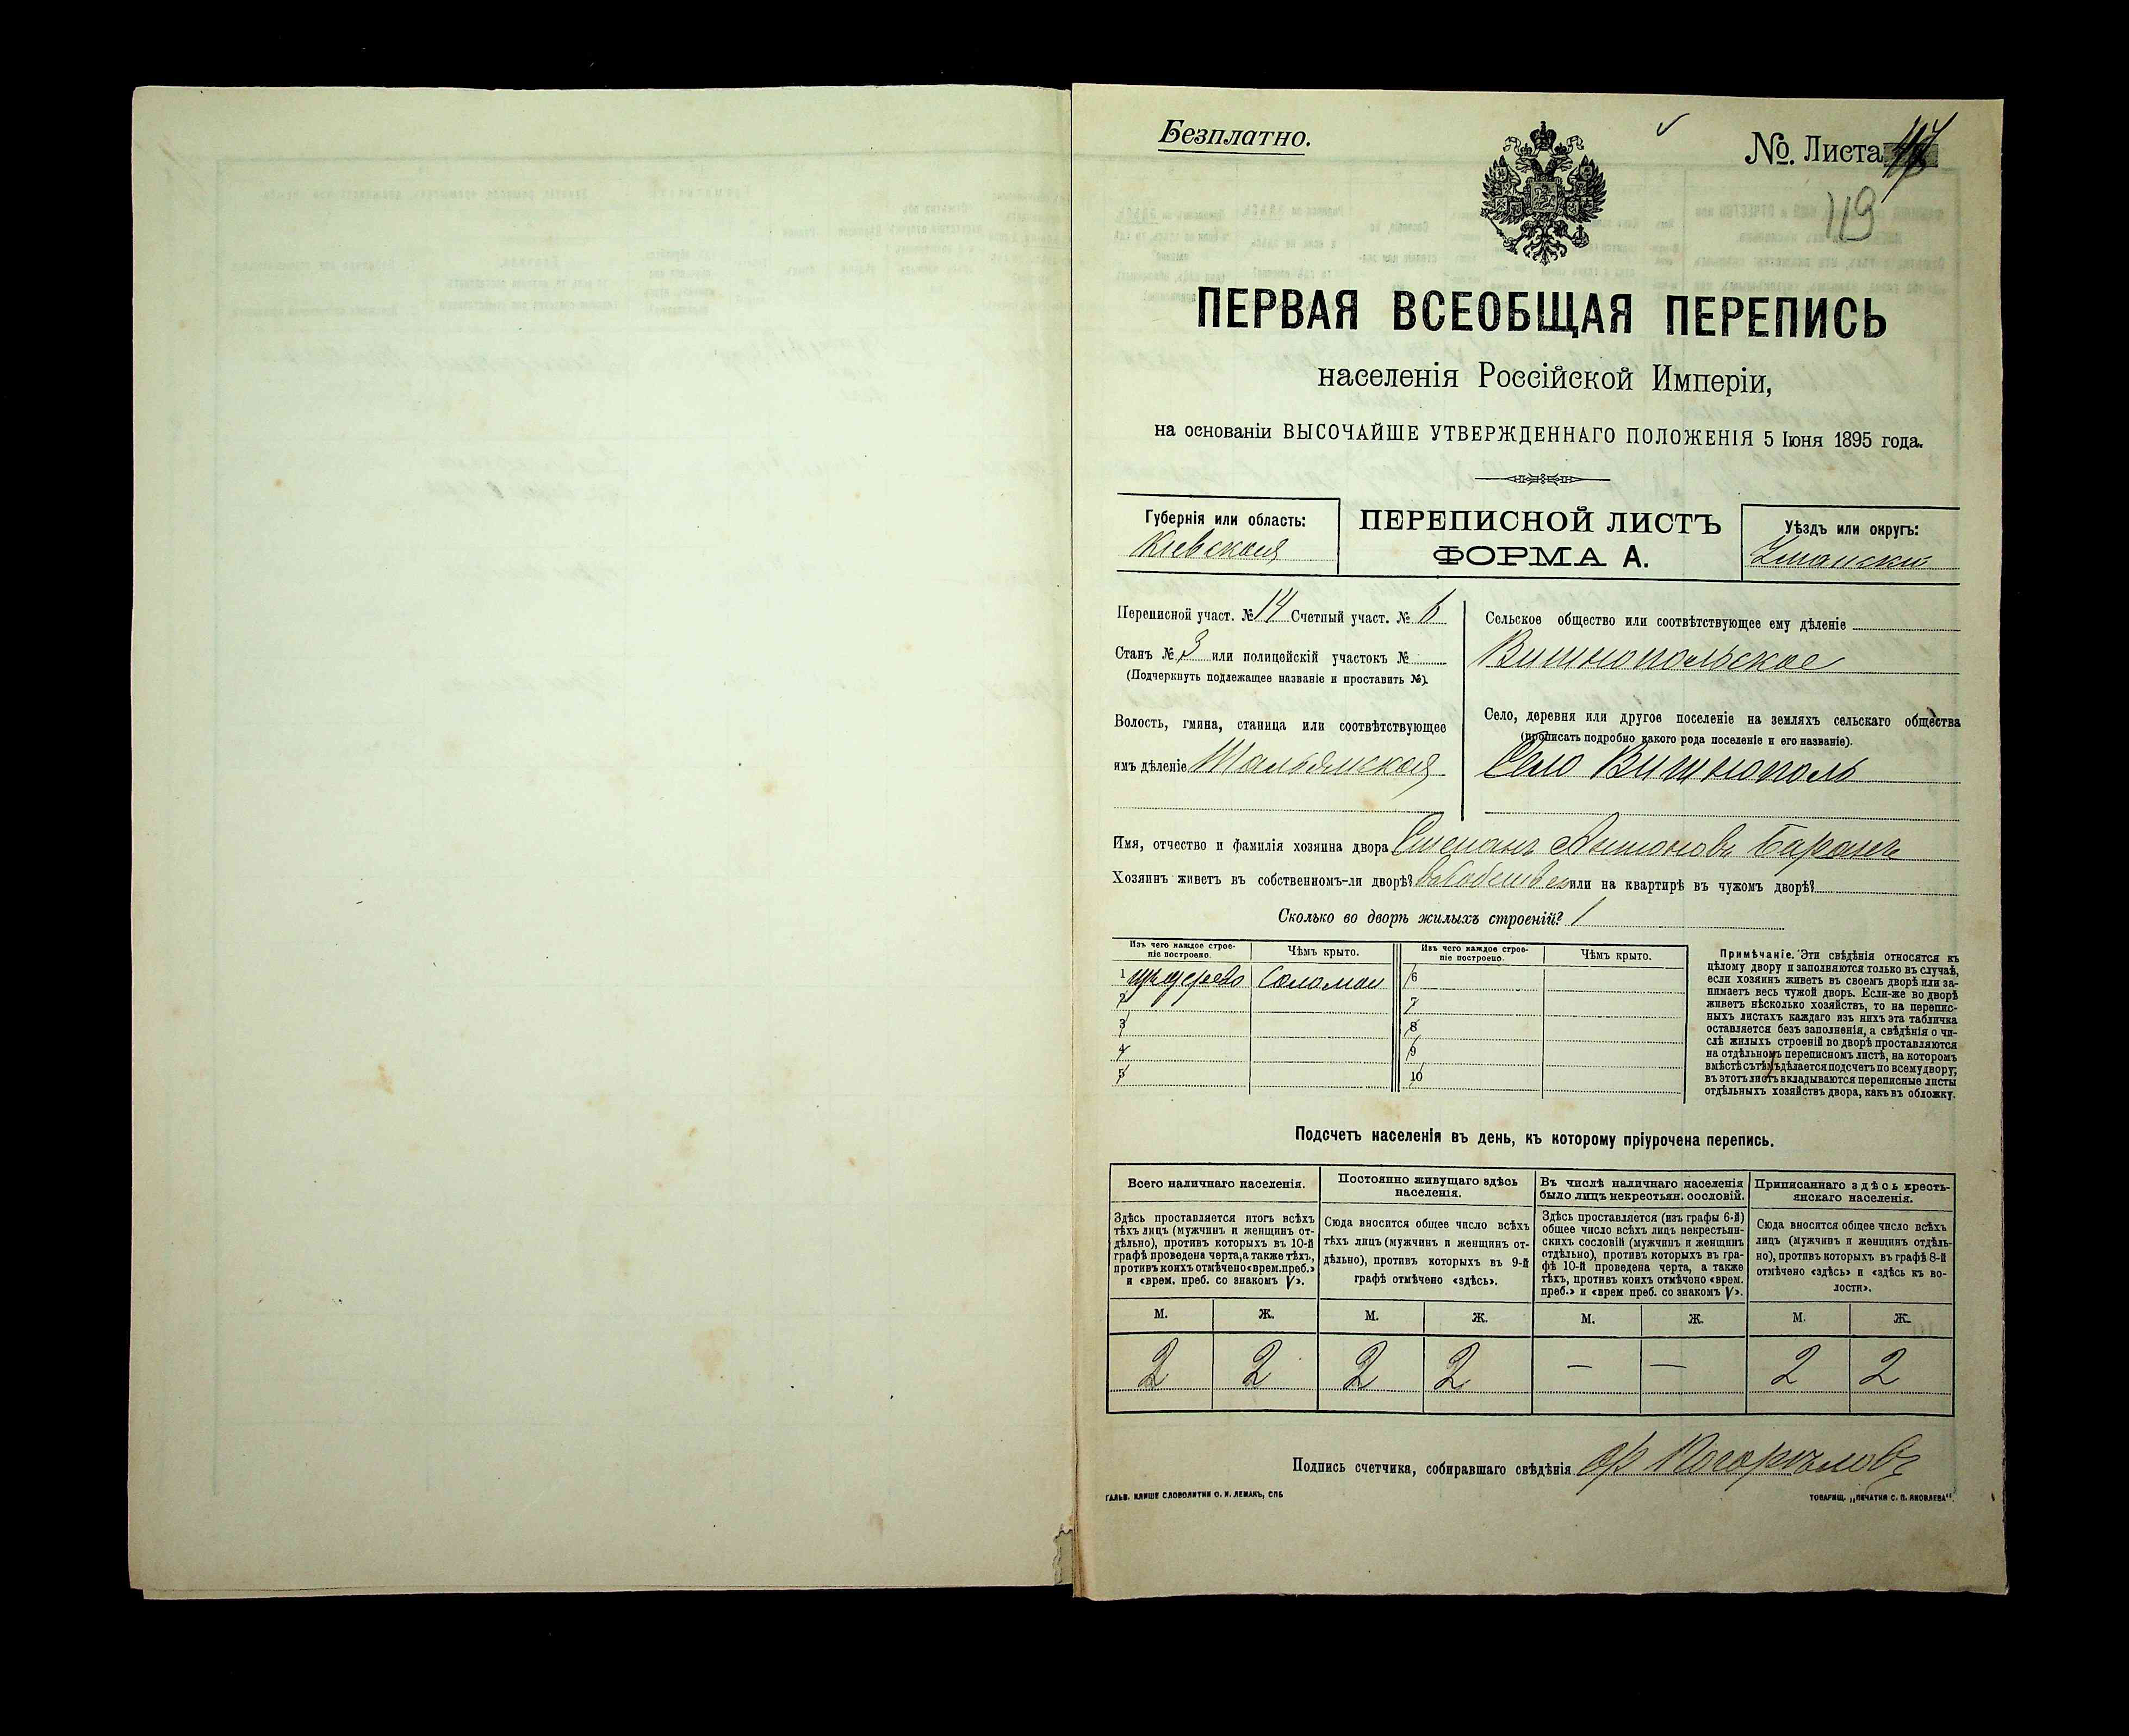 Безплатно.
№. Листа
119
ПЕРВАЯ ВСЕОБЩАЯ ПЕРЕПИСЬ
населенія Россійской Имперіи,
на основаніи ВЫСОЧАЙШЕ УТВЕРЖДЕННАГО ПОЛОЖЕНІЯ 5 Іюня 1895 года.
Губернія или область:
Кіевская
ПЕРЕПИСНОЙ ЛИСТЪ
ФОРМА А.
Уѣздъ или округъ:
Уманскій
Переписной участ. № 14 Счетный участ. № 6
Станъ № 3 или полицейскій участокъ №
(Подчеркнуть подлежащее названіе и проставить №).
Волость, гмина, станица или соотвѣтствующее
имъ дѣленіе
Сельское общество или соотвѣтствующее ему дѣленіе
Вишнопольское
Село, деревня или другое поселеніе на земляхъ сельскаго общества
(прописать подробно какого рода поселеніе и его названіе).
Село Вишнополь
Имя, отчество и фамилія хозяина двора Степанъ Антоновъ Баранъ
Хозяинъ живетъ въ собственномъ-ли дворѣ? или на квартирѣ въ чужомъ дворѣ?
Сколько во дворѣ жилыхъ строеній? 1
Изъ чего каждое строе-
ніе построено.
Чѣмъ крыто.
Изъ чего каждое строе-
ніе построено.
Чѣмъ крыто.
1 Соломой 6
2 7
3 8
4 9
5 10
Примѣчаніе. Эти свѣдѣнія относятся къ
цѣлому двору и заполняются только въ случаѣ,
если хозяинъ живетъ въ своемъ дворѣ или за-
нимаетъ весь чужой дворъ. Если-же во дворѣ
живетъ нѣсколько хозяйствъ, то на перепис-
ныхъ листахъ каждаго изъ нихъ эта табличка
оставляется безъ заполненія, а свѣдѣнія о чи-
слѣ жилыхъ строеній во дворѣ проставляются
на отдѣльномъ переписномъ листѣ, на которомъ
вмѣстѣ съ тѣмъ дѣлается подсчетъ по всему двору;
въ этотъ листъ вкладываются переписные листы
отдѣльныхъ хозяйствъ двора, какъ въ обложку.
Подсчетъ населенія въ день, къ которому пріурочена перепись.
Всего наличнаго населенія.
Здѣсь проставляется итогъ всѣхъ
тѣхъ лицъ (мужчинъ и женщинъ от-
дѣльно), противъ которыхъ въ 10-й
графѣ проведена черта, а также тѣхъ,
противъ коихъ отмѣчено «врем. преб.»
и «врем. преб. со знакомъ V».
Постоянно живущаго здѣсь
населенія.
Сюда вносится общее число всѣхъ
тѣхъ лицъ (мужчинъ и женщинъ от-
дѣльно), противъ которыхъ въ 9-й
графѣ отмѣчено «здѣсь».
Въ числѣ наличнаго населенія
было лицъ некрестьян. сословій.
Здѣсь проставляется (изъ графы 6-й)
общее число всѣхъ лицъ некрестьян-
скихъ сословій (мужчинъ и женщинъ
отдѣльно), противъ которыхъ въ гра-
фѣ 10-й проведена черта, а также
тѣхъ, противъ коихъ отмѣчено «врем.
преб.» и «врем преб. со знакомъ V».
Приписаннаго здѣсь кресть-
янскаго населенія.
Сюда вносится общее число всѣхъ
лицъ (мужчинъ и женщинъ отдѣль-
но), противъ которыхъ въ графѣ 8-й
отмѣчено «здѣсь» и «здѣсь къ во-
лости».
М. Ж. М. Ж. М. Ж. М. Ж.
2 2 2 2 — — 2 2
Подпись счетчика, собиравшаго свѣдѣнія
ГАЛЬВ. КЛИШЕ СЛОВОЛИТНИ О. И. ЛЕМАНЪ, СПБ
ТОВАРИЩ. „ПЕЧАТНЯ С. П. ЯКОВЛЕВА".